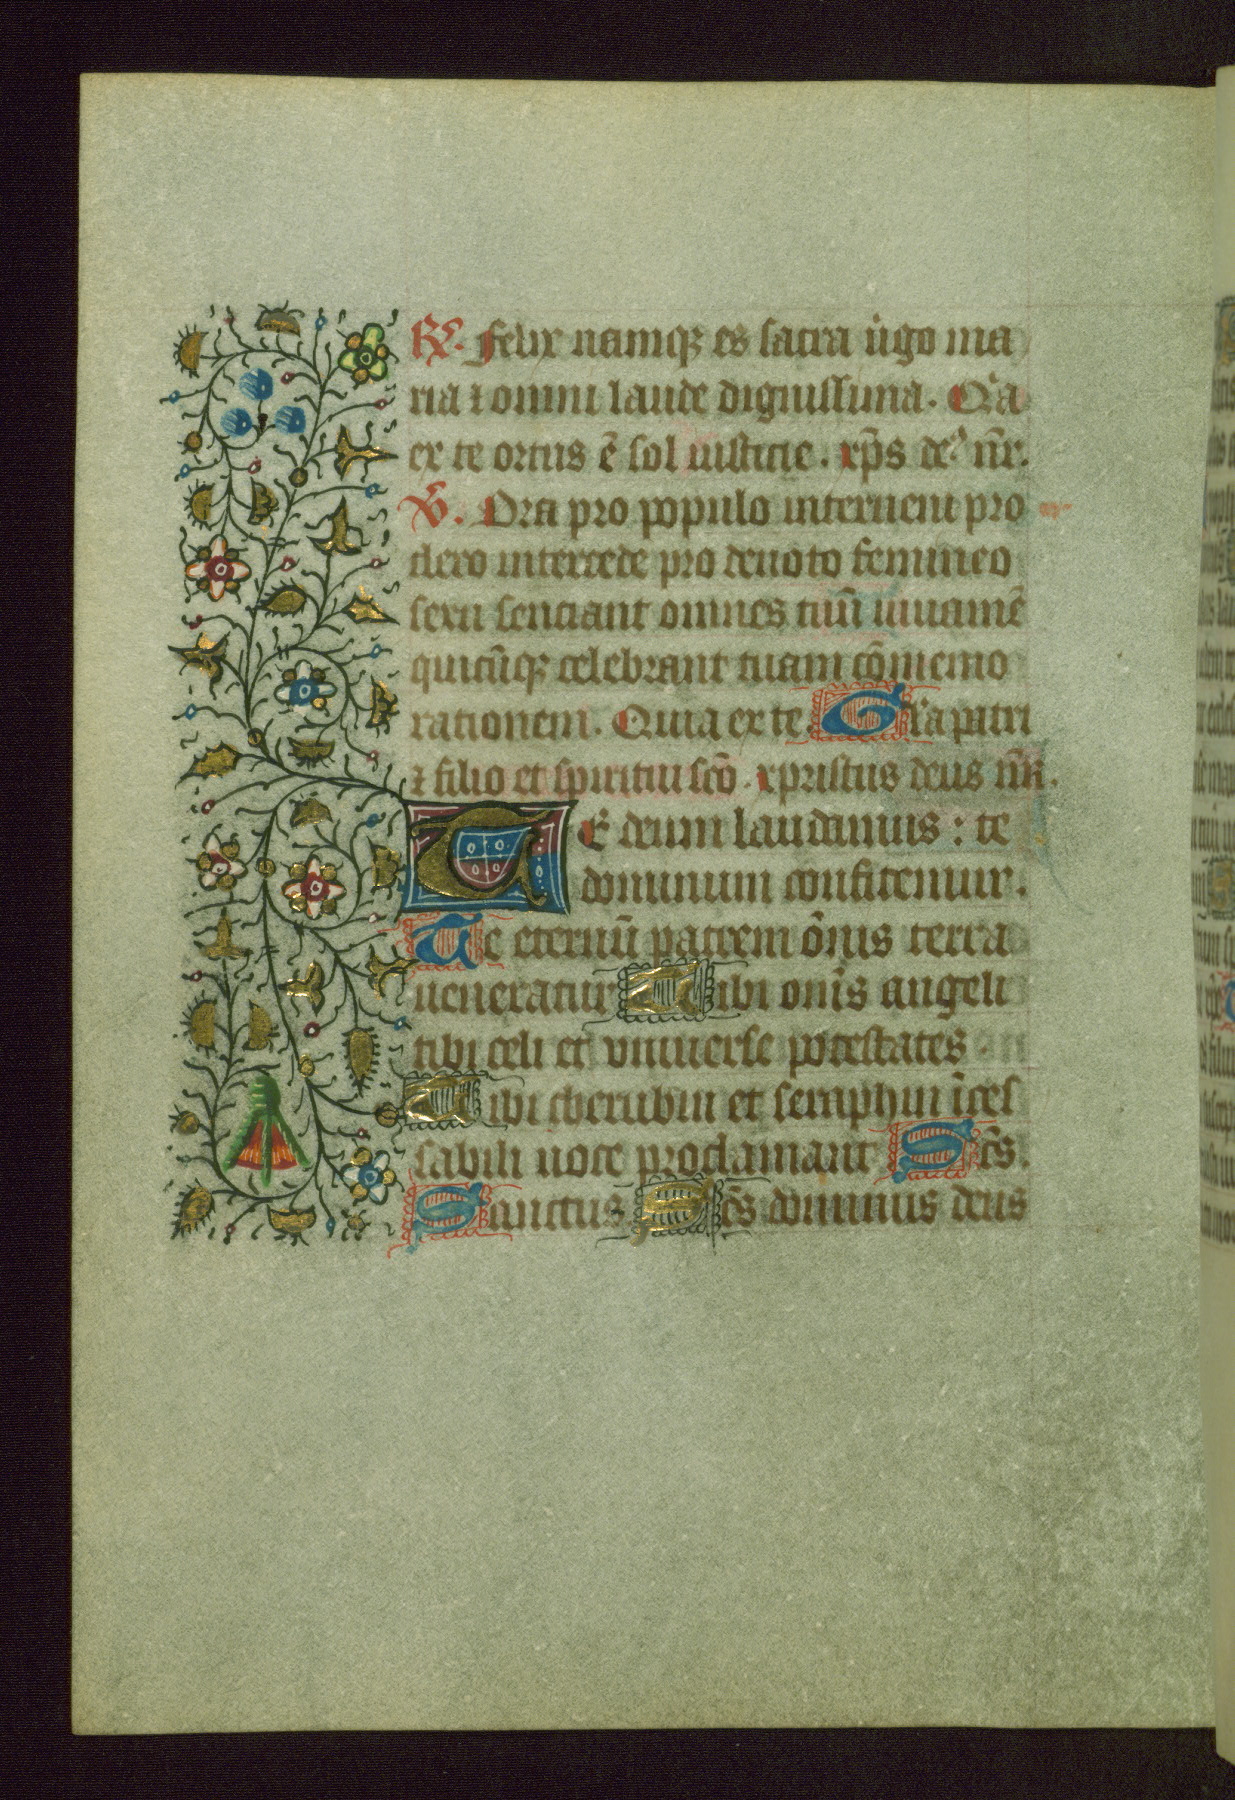 R̷. Felix namq̷ es sacra ūgo ma
ria ⁊ omni laude dignissima. Qīa
ex te ortus ē sol iusticie. xp̄s deꝰ nr̄.
V̷. Ora pro populo interueni pro
clero intercede pro deuoto femineo
sexu senciant omnes tuū iuuamē
quicūq̷ celebrant tuam cōmemo
rationem. Quia ex te. Gľa patri
⁊ filio et spiritui scō. xpristus deus nr̄.
TE deum laudamus : te
dominum confitemur.
Te eternū patrem ōnis terra
ueneratur Tibi onīs angeli
tibi celi et vniuerse potestates.
Tibi cherubin et seraphin īces
sabili uoce proclamant Sc̄s.
Sanctus Sc̄s dominus deus